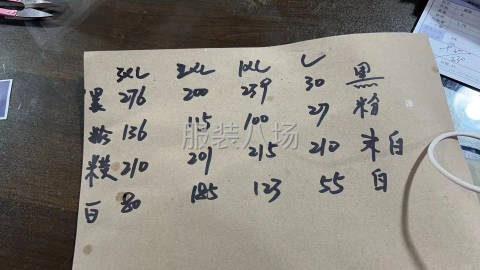 3XL 2XL 1XL L
黑 276 200 239 30 黑
粉 136 115 100 27 粉
210 201 215 210 米白
白 80 185 123 55 白
服装八场